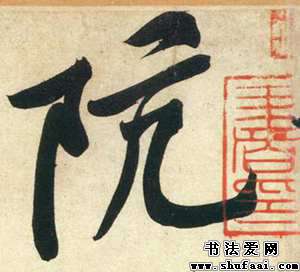 阮
书法爱好网
www.shufaai.com